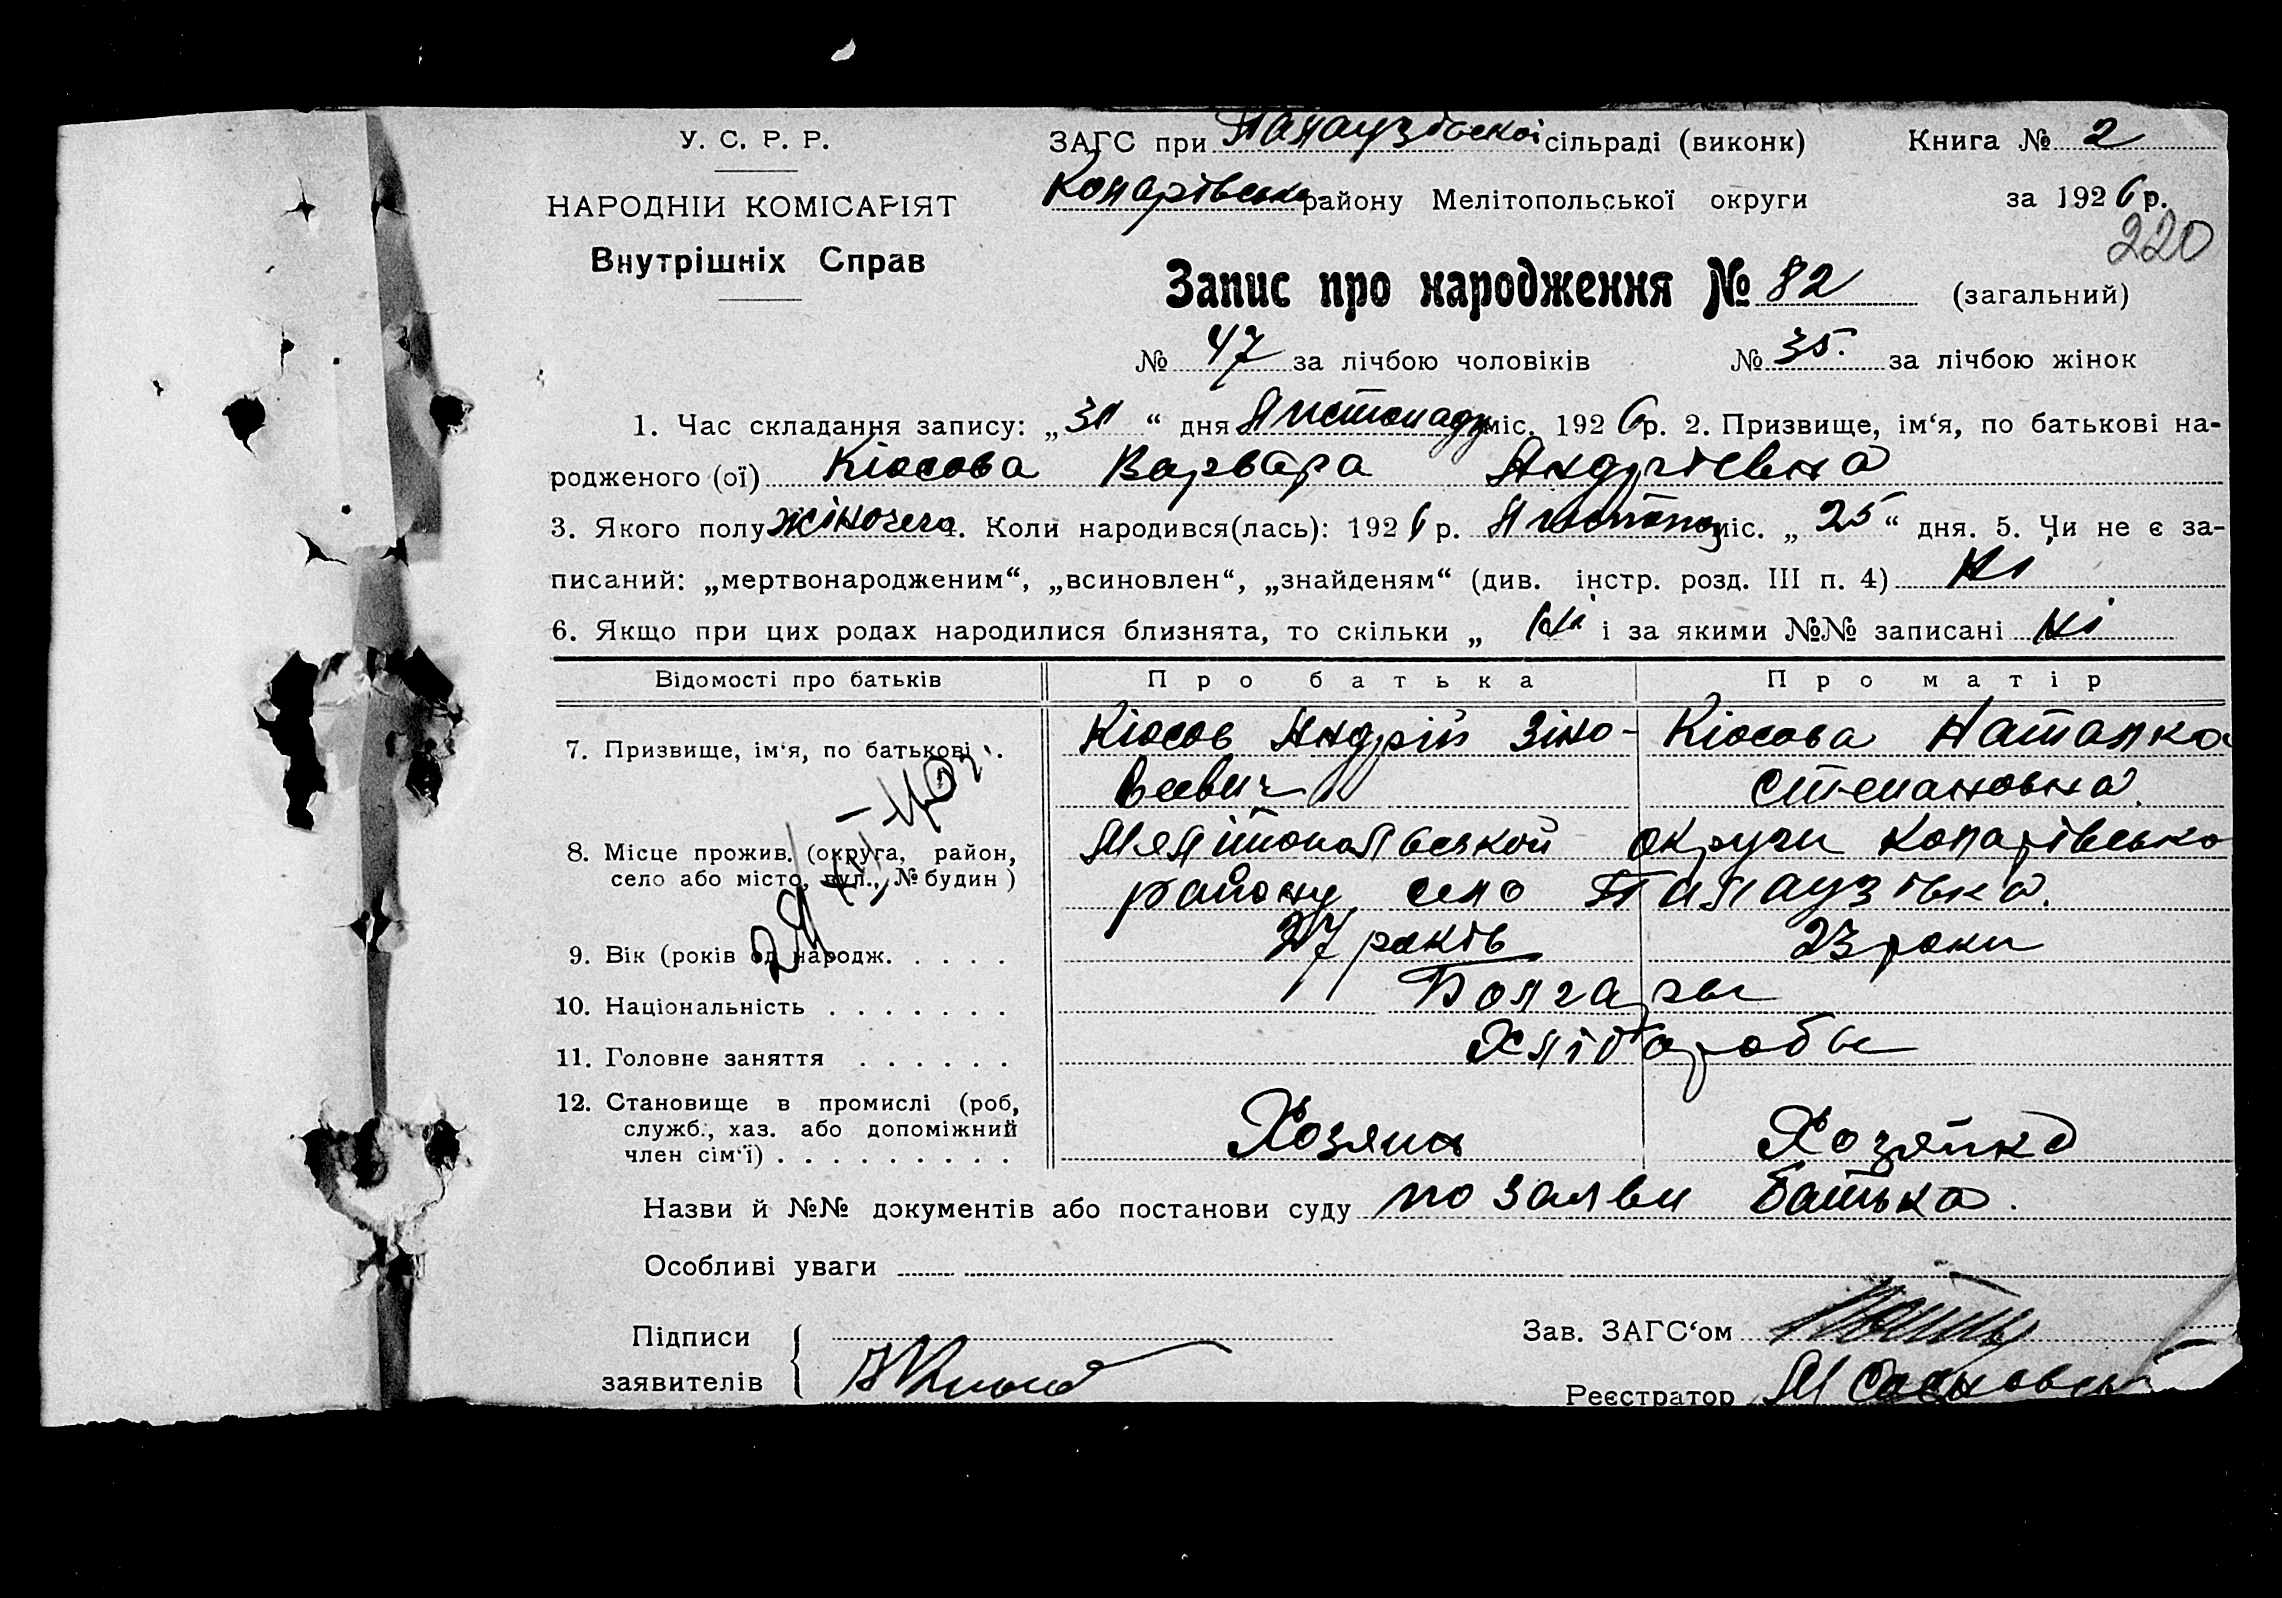 У. С. Р. Р.
НАРОДНІЙ КОМІСАРІЯТ
Внутрішніх Справ
ЗАГС при Палаузівской сільраді (виконк) Книга № 2
Коларівсько району Мелітопольської округи за 1926 р.
220
Запис про народження № 82 (загальний)
№ 47 за лічбою чоловіків № 35. за лічбою жінок
1. Час складання запису: „30“ дня Листопаду міс. 1926 р. 2. Призвище, ім‘я, по батькові на-
родженого (ої) Кіосова Варвара Андріевна
3. Якого полу жіночего 4. Коли народився(лась): 1926 р. Листопад міс. „25“ дня. 5. Чи не є за-
писаний: „мертвонародженим“, „всиновлен“, „знайденям“ (див. інстр. розд. III п. 4) Ні
6. Якщо при цих родах народилися близнята, то скільки „ Ні і за якими №№ записані Ні
Відомості про батьків Про батька Про матір
7. Призвище, ім‘я, по батькові . Кіосов Андрій Зіно- Кіосова Наталка
веевич Степановна.
8. Місце прожив. (округа, район, Мелітопольской округи Коларівсько
село або місто, вул., № будин) району село Палаузівка.
9. Вік (років од народж. . . . . 27 раків 23 роки
10. Національність . . . . . . . Болгары
11. Головне заняття . . . . . . Хліборобы
12. Становище в промислі (роб,
служб., хаз. або допоміжний
член сім‘ї) . . . . . . . . . Хозяин Хозяйка
Назви й №№ документів або постанови суду по заяви батька.
Особливі уваги
Підписи
заявителів
Зав. ЗАГС‘ом
Реєстратор